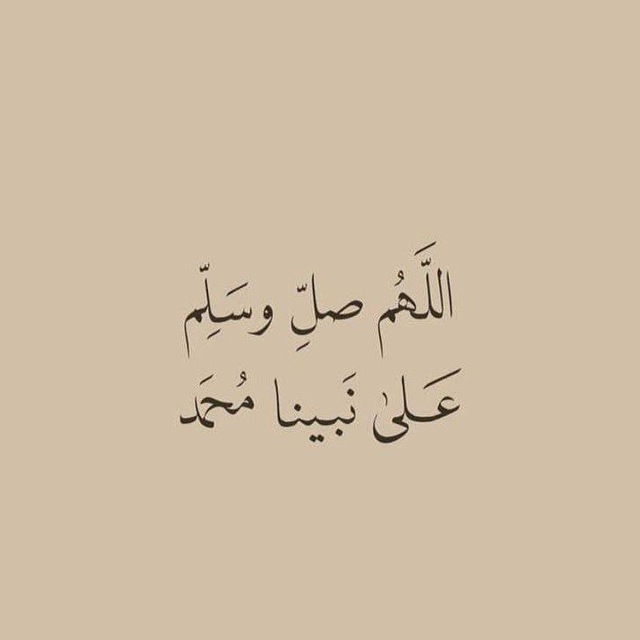 اللَّهُم صلِّ وسَلِّم
عَلىٰ نَبينا مُحمَد